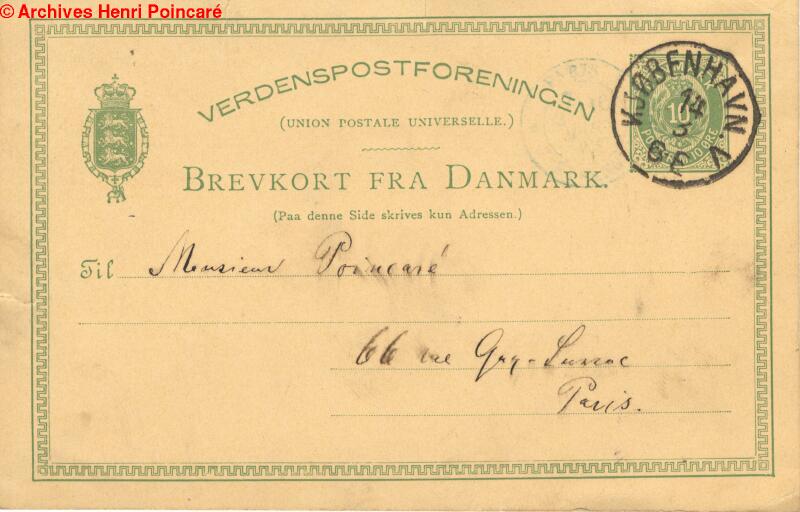 © Archives Henri Poincaré
VERDENSPOSTFORENINGEN
(UNION POSTALE UNIVERSELLE.)
BREVKORT FRA DANMARK.
(Paa denne Side skrives kun Adressen.)
KJØBENHAVN
14
3
6 E
10
Til Monsieur Poincaré
66 rue Gay-Lussac
Paris.